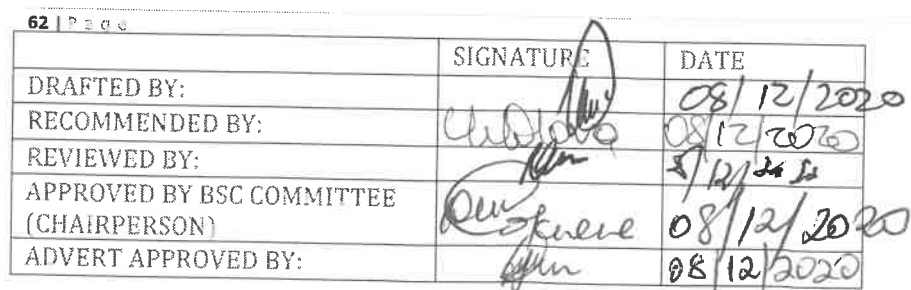 62 | Page
SIGNATURE DATE
DRAFTED BY: 08/12/2020
RECOMMENDED BY: 08/12/2020
REVIEWED BY: 8/12/
APPROVED BY BSC COMMITTEE
(CHAIRPERSON) 08/12/2020
ADVERT APPROVED BY: 08/12/2020